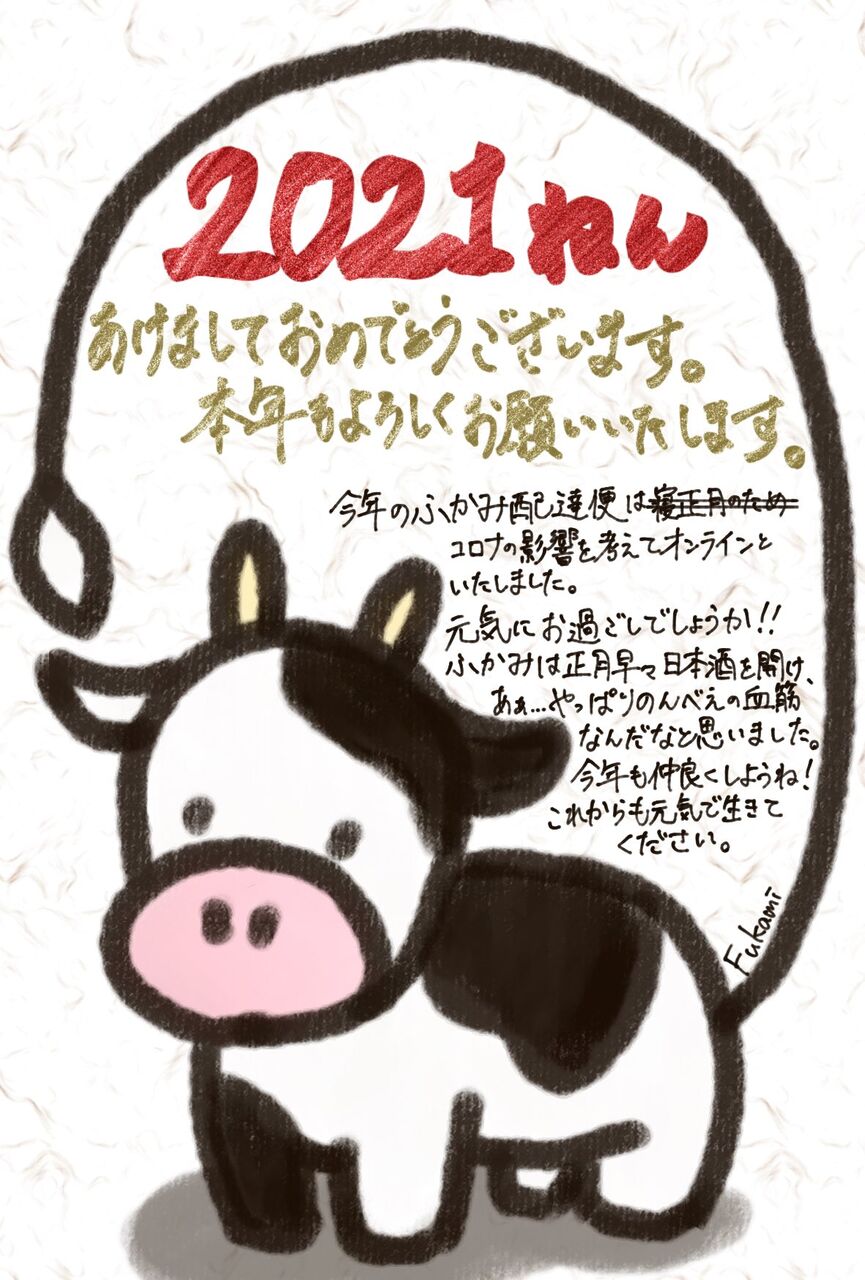 2021ねん
あけましておめでとうございます。
本年もよろしくお願いいたします。
今年のふかみ配達便は寝正月のため
コロナの影響を考えてオンラインと
いたしました。
元気にお過ごしでしょうか!!
ふかみは正月早々日本酒を開け、
あぁ…やっぱりのんべえの血筋
なんだなと思いました。
今年も仲良くしようね!
これからも元気で生きて
ください。
Fukami